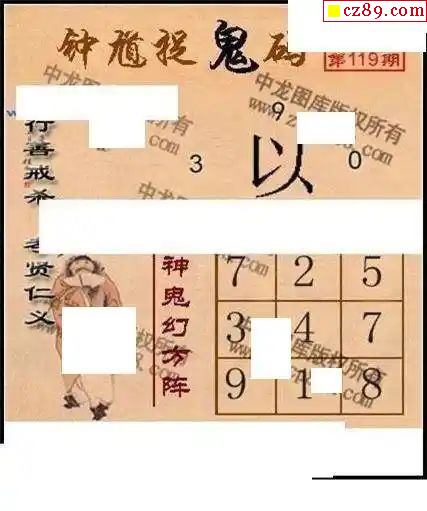 cz89.com
钟馗捉鬼码
第119期
9
3
以
0
行善戒杀
孝贤仁义
神鬼幻方阵
7 2 5
3 4 7
9 1 8
中龙图库版权所有
中龙图库版权所有
中龙图库版权所有